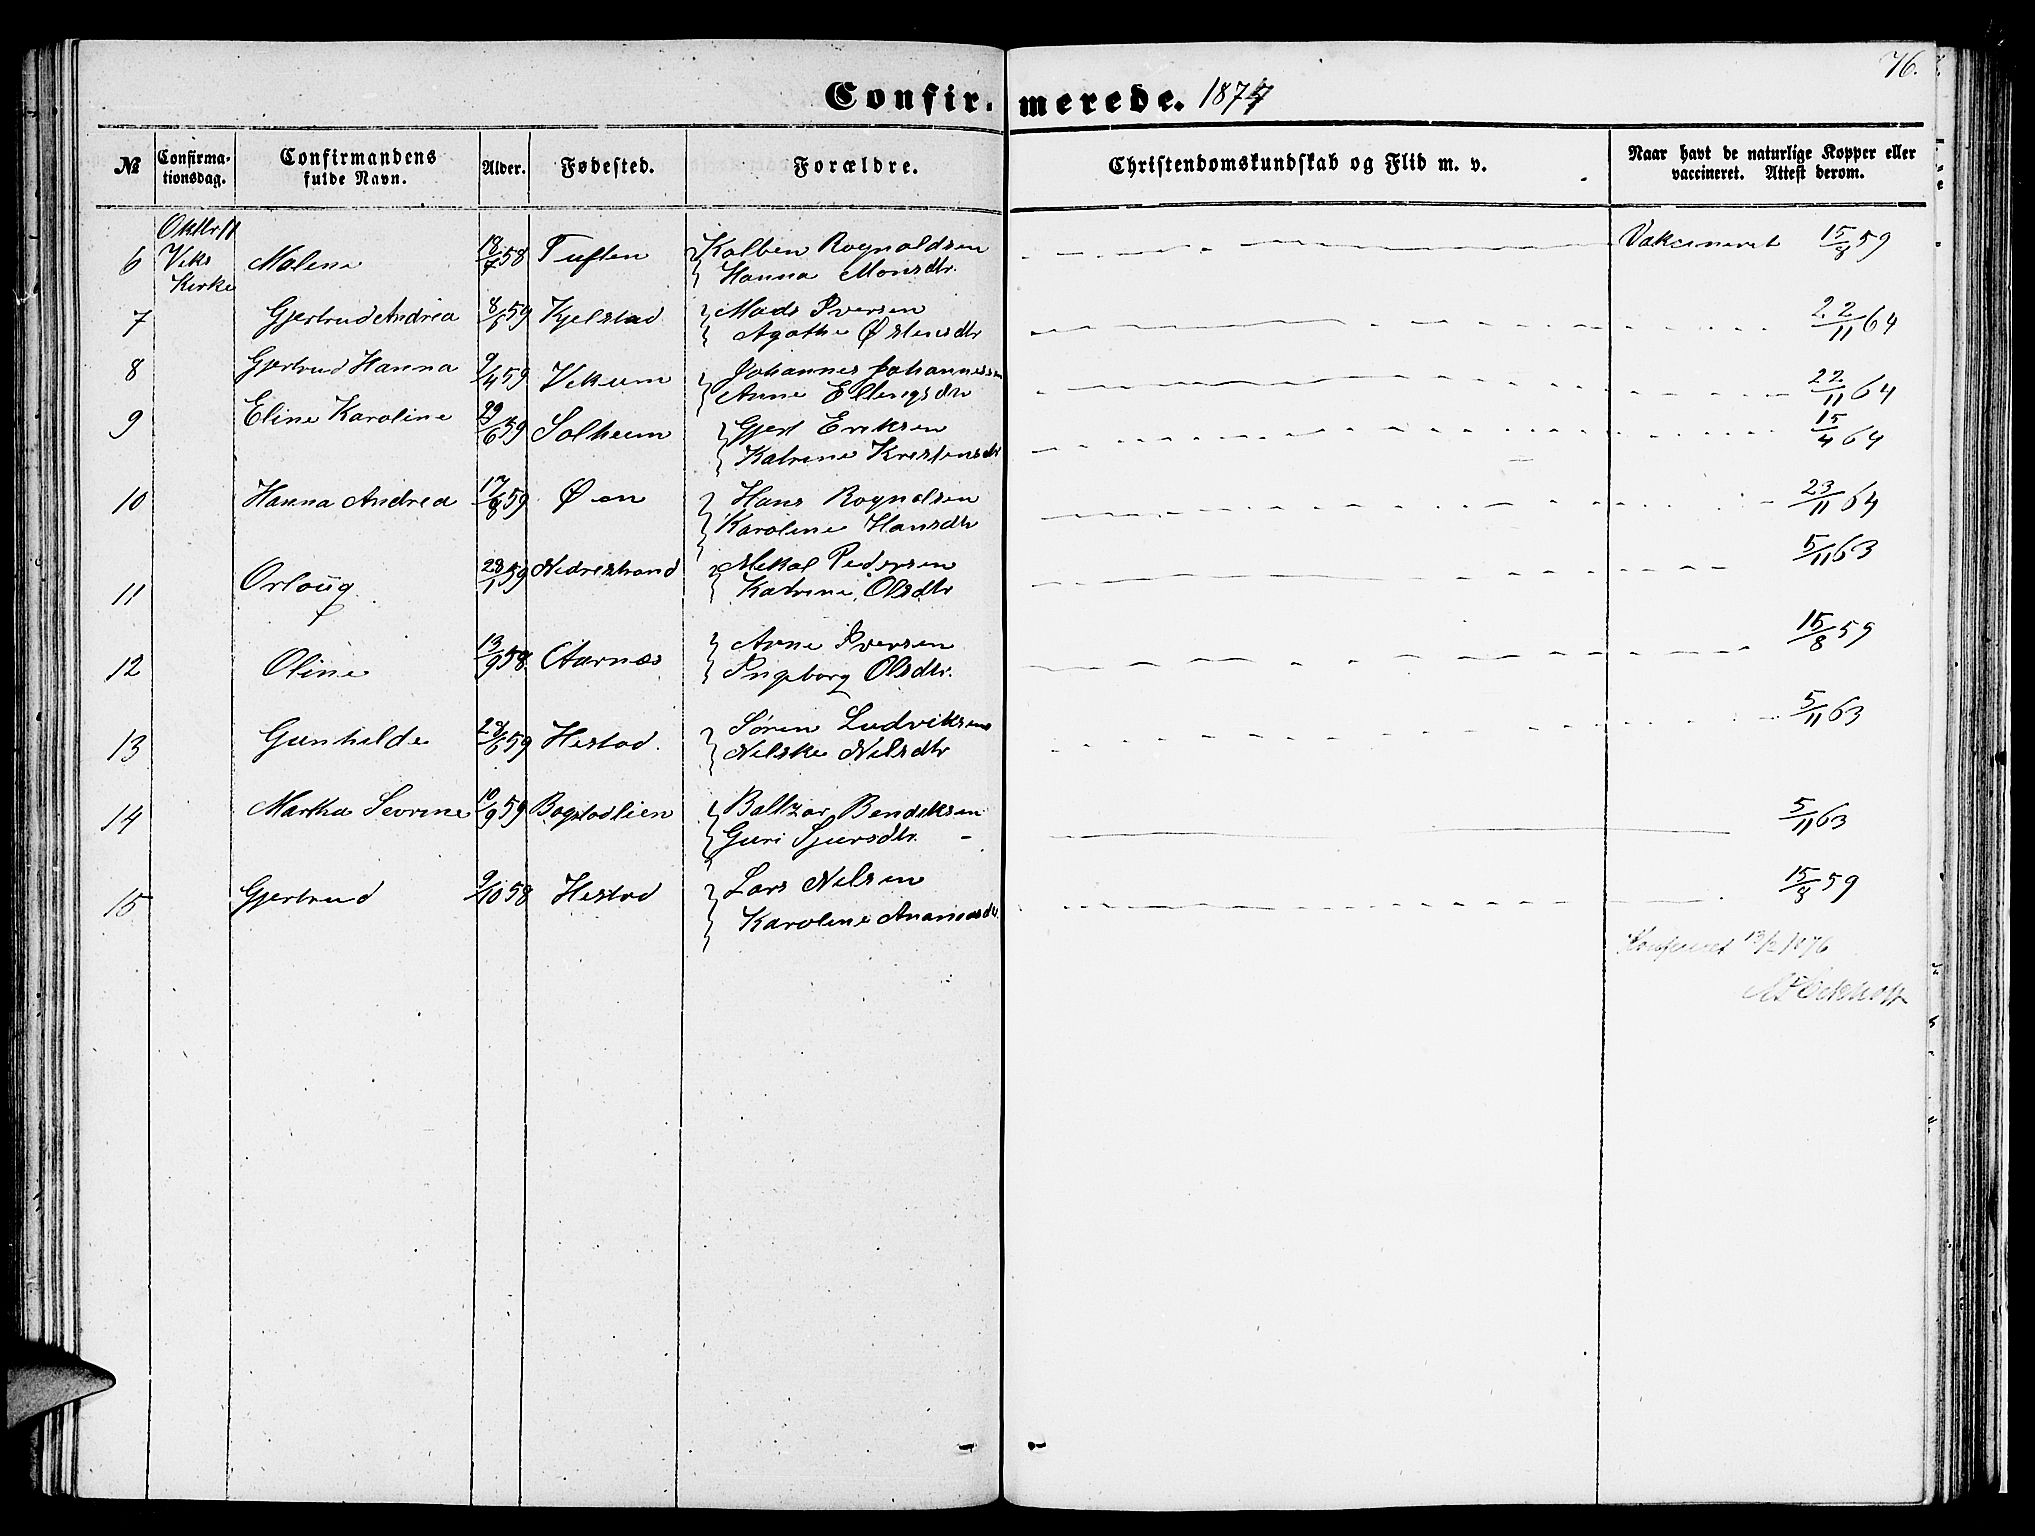 76.
Confirmerede. 1874
№ Confirmationsdag. Confirmandens fulde Navn. Alder. Fødested. Forældre. Christendomskundskab og Flid m. v. Naar havt de naturlige Kopper eller vaccineret. Attest derom.
6 Oktbr 11 Viks Kirke Malene 18/7 58 Tuften Kolben Rognaldsen Hanna Monsdtr. Vakcineret 15/8 59
7 Gjertrud Andrea 8/6 59 Kjelstad Mads Iversen Agathe Østensdtr 22/11 64
8 Gjertrud Hanna 9/4 59 Vikum Johannes Johannessen Anne Ellingsdtr 22/11 64
9 Eline Karoline 29/6 59 Solheim Gjert Eriksen Katrine Kristensdtr 15/4 64
10 Hanna Andrea 17/8 59 Øen Hans Rognalsen Karoline Hansdtr 23/11 64
11 Orloug 28/1 59 Nedrestrand Mikal Pedersen Katrine Olsdtr 5/11 63
12 Oline 13/9 58 Aarnæs Arne Iversen Ingeborg Olsdtr. 15/8 59
13 Gunhilde 59 Hestad. Søren Ludviksen Nilske Nilsdtr 5/11 63
14 Martha Sevrine 10/9 59 Bogstadlien Baltzar Bendiksen Guri Sjursdtr. 5/11 63
15 Gjertrud 9/10 58 Hestad Lars Nilsen Karoline 15/8 59
Konfereret 13/2 1876